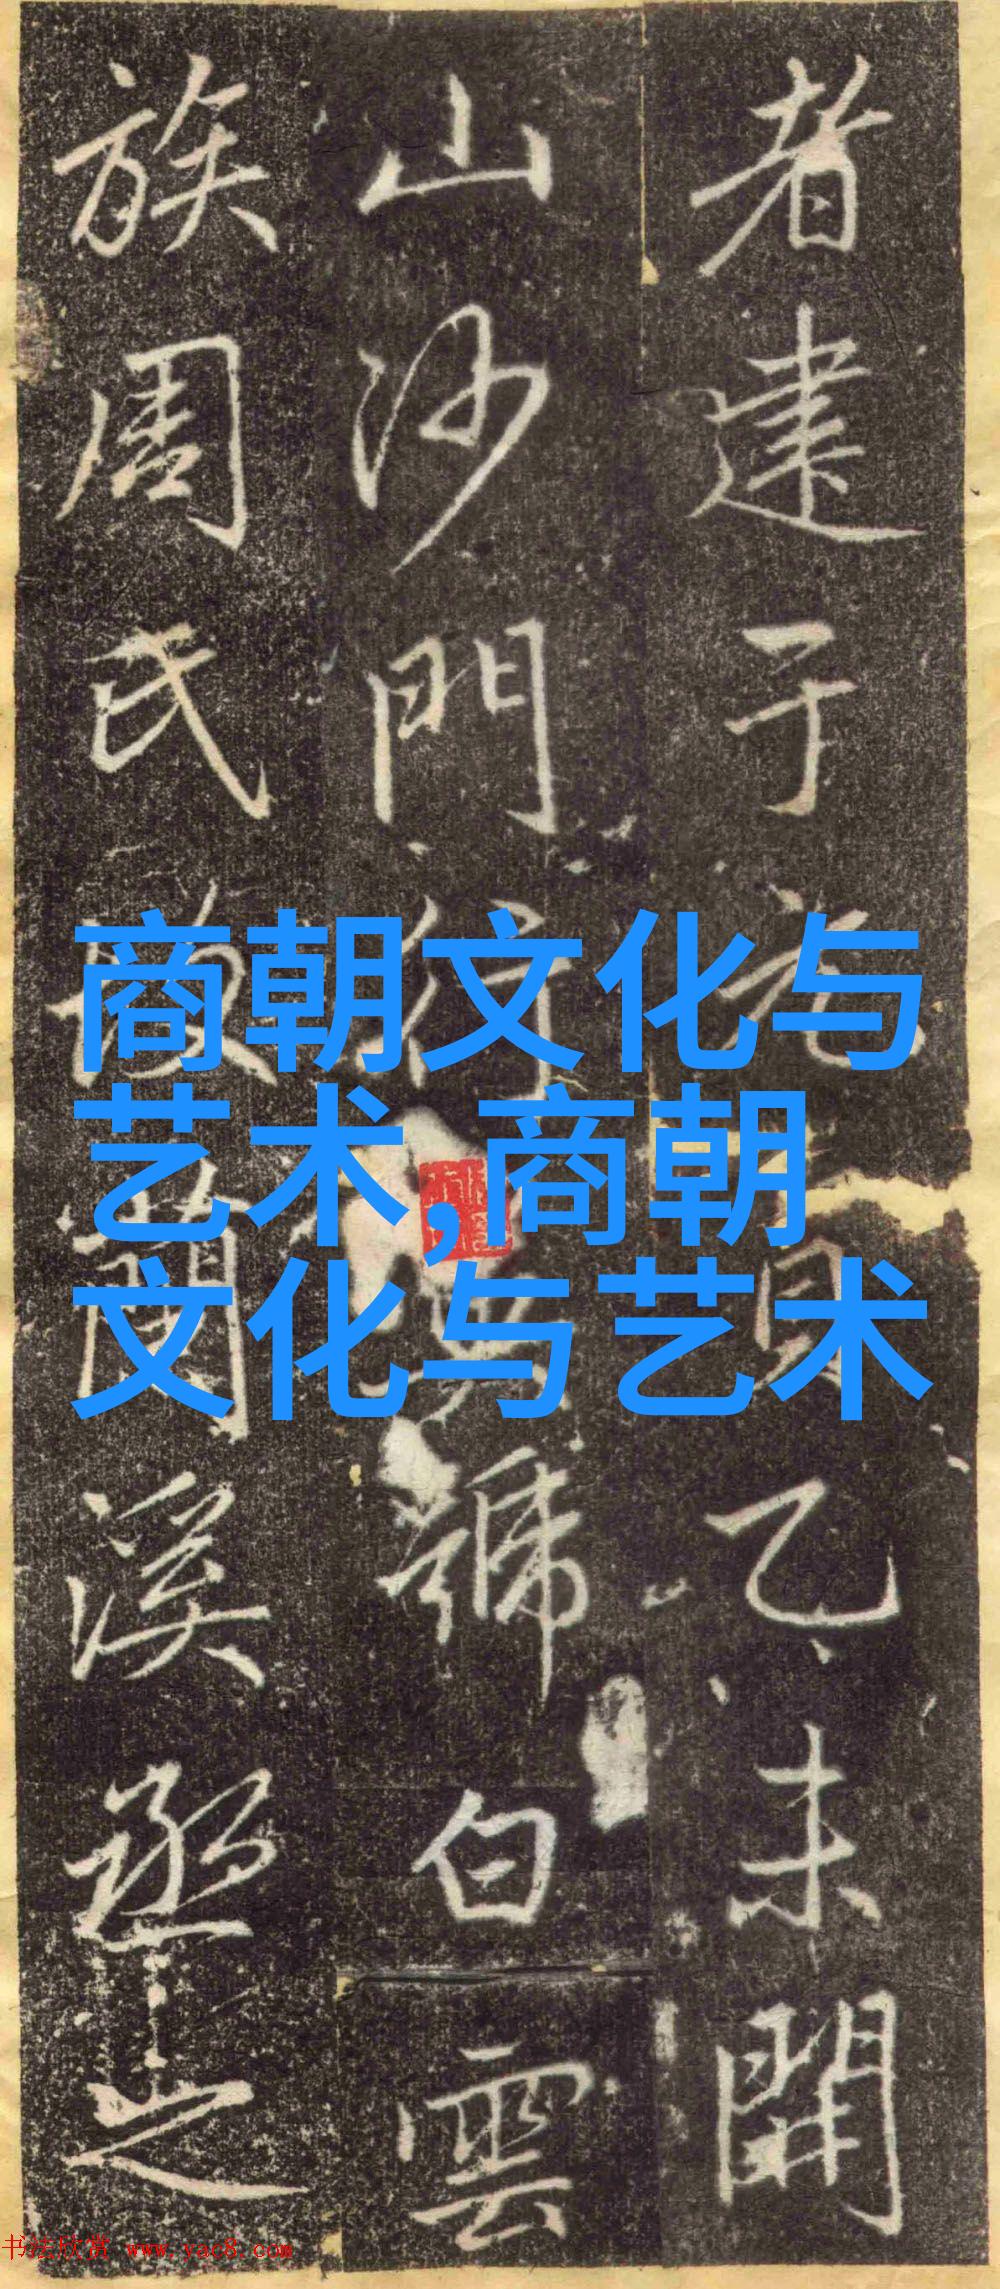 者建于元貞乙未開
山沙門行號白雲
族周氏蘭溪丞之
商朝文化与
艺术,商朝
文化与艺术
书法欣赏 www.yac8.com